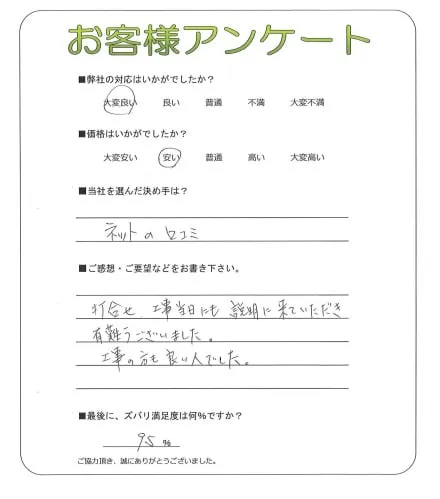 お客様アンケート
■弊社の対応はいかがでしたか?
大変良い 良い 普通 不満 大変不満
■価格はいかがでしたか?
大変安い 安い 普通 高い 大変高い
■当社を選んだ決め手は?
ネットの口コミ
■ご感想・ご要望などをお書き下さい。
打合せ、工事当日にも説明に来ていただき
有難うございました。
工事の方も良い人でした。
■最後に、ズバリ満足度は何%ですか?
95 %
ご協力頂き、誠にありがとうございました。